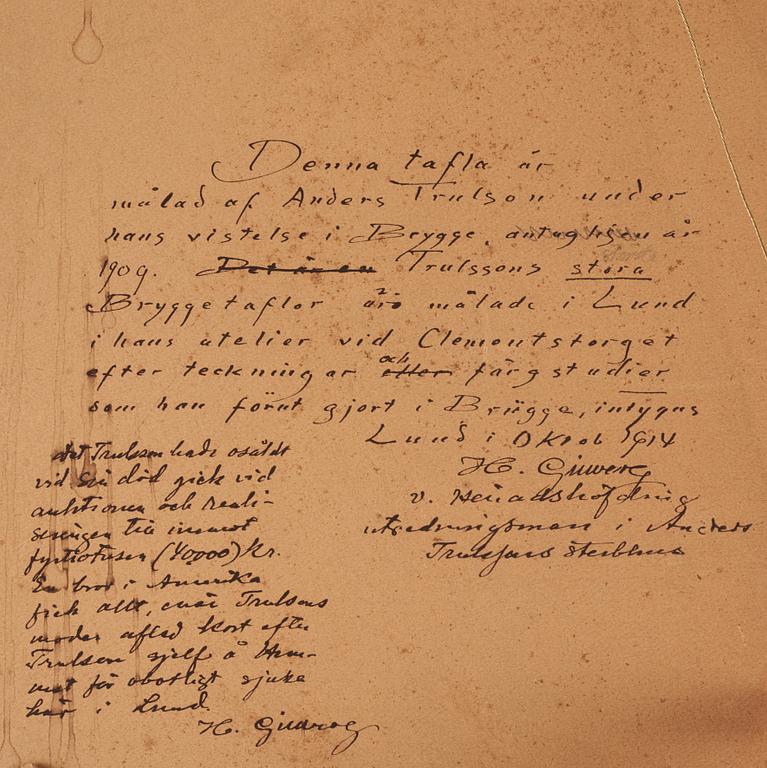 Denna tafla är
målad af Anders Trulson under
hans vistelse i Brygge, antagligen år
1909. Det är en Trulssons stora
Bryggetaflor äro målade i Lund
i hans atelier vid Clemenstorget
efter teckningar och efter färgstudier
som han förut gjort i Brügge, intygas
Lund i Oktob 1914
H.
v. Häradshöfding
utredningsman i Anders
Trulssons sterbhus
det Trulson hade osåldt
vid sin död gick vid
auktionen och reali-
seringen till inemot
fyrtiotusen (40000) Kr.
En bror i Amerika
fick allt, enär Trulsons
moder afled kort efter
Trulson sjelf å Hem-
met för obotligt sjuka
här i Lund.
H.